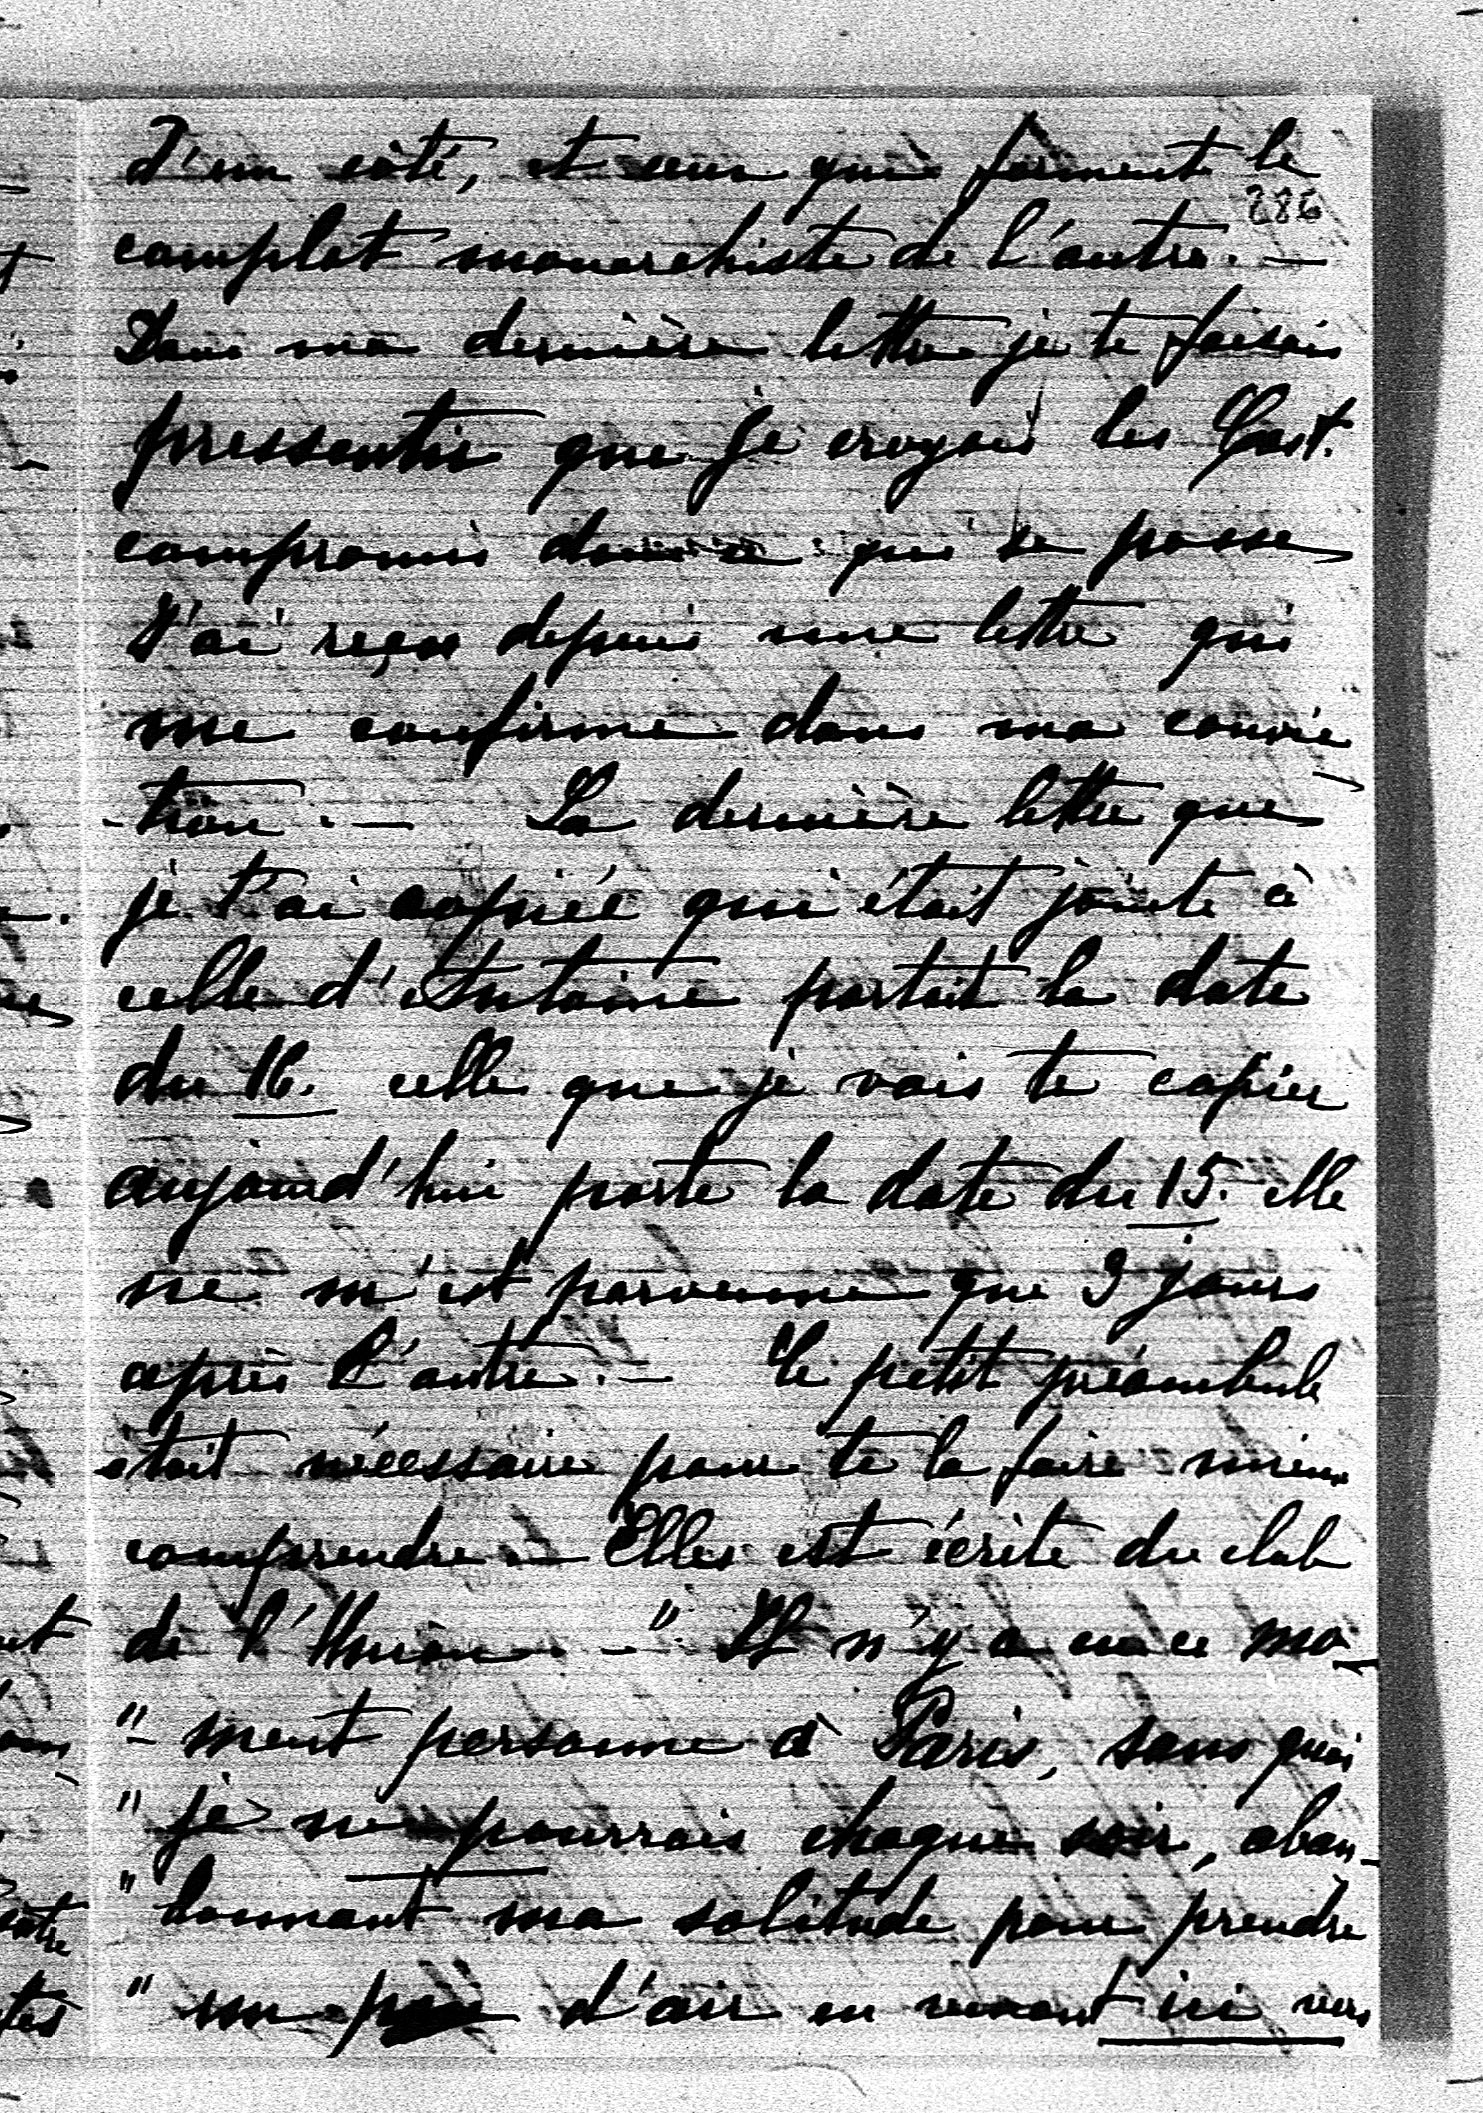 d'un côté, et ceux qui forment le
286
complot monarchiste de l'autre. —
Dans ma dernière lettre je te faisais
pressentir que je croyais les Cast.
compromis dans ce qui se passe
J'ai reçu depuis une lettre qui
me confirme dans ma convic
-tion. — La dernière lettre que
je t'ai copiée qui était jointe à
celle d'Antoine portait la date
du 16. celle que je vais te copier
aujourd'hui porte la date du 15. elle
ne m'est parvenue que 3 jours
après l'autre. — Ce petit préambule
était nécessaire pour te la faire mieux
comprendre. — Elle est écrite du club
de l'Union. — " Il n'y a en ce mo-
" - ment personne à Paris, sans quoi
" je ne pourrais chaque soir, aban-
" donnant ma solitude pour prendre
" un peu d'air en venant ici vers